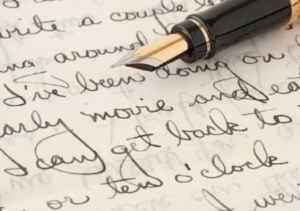 write a couple
ing around
I've been going on
early movie and ea
I can get back to
or ten o'clock
I wer